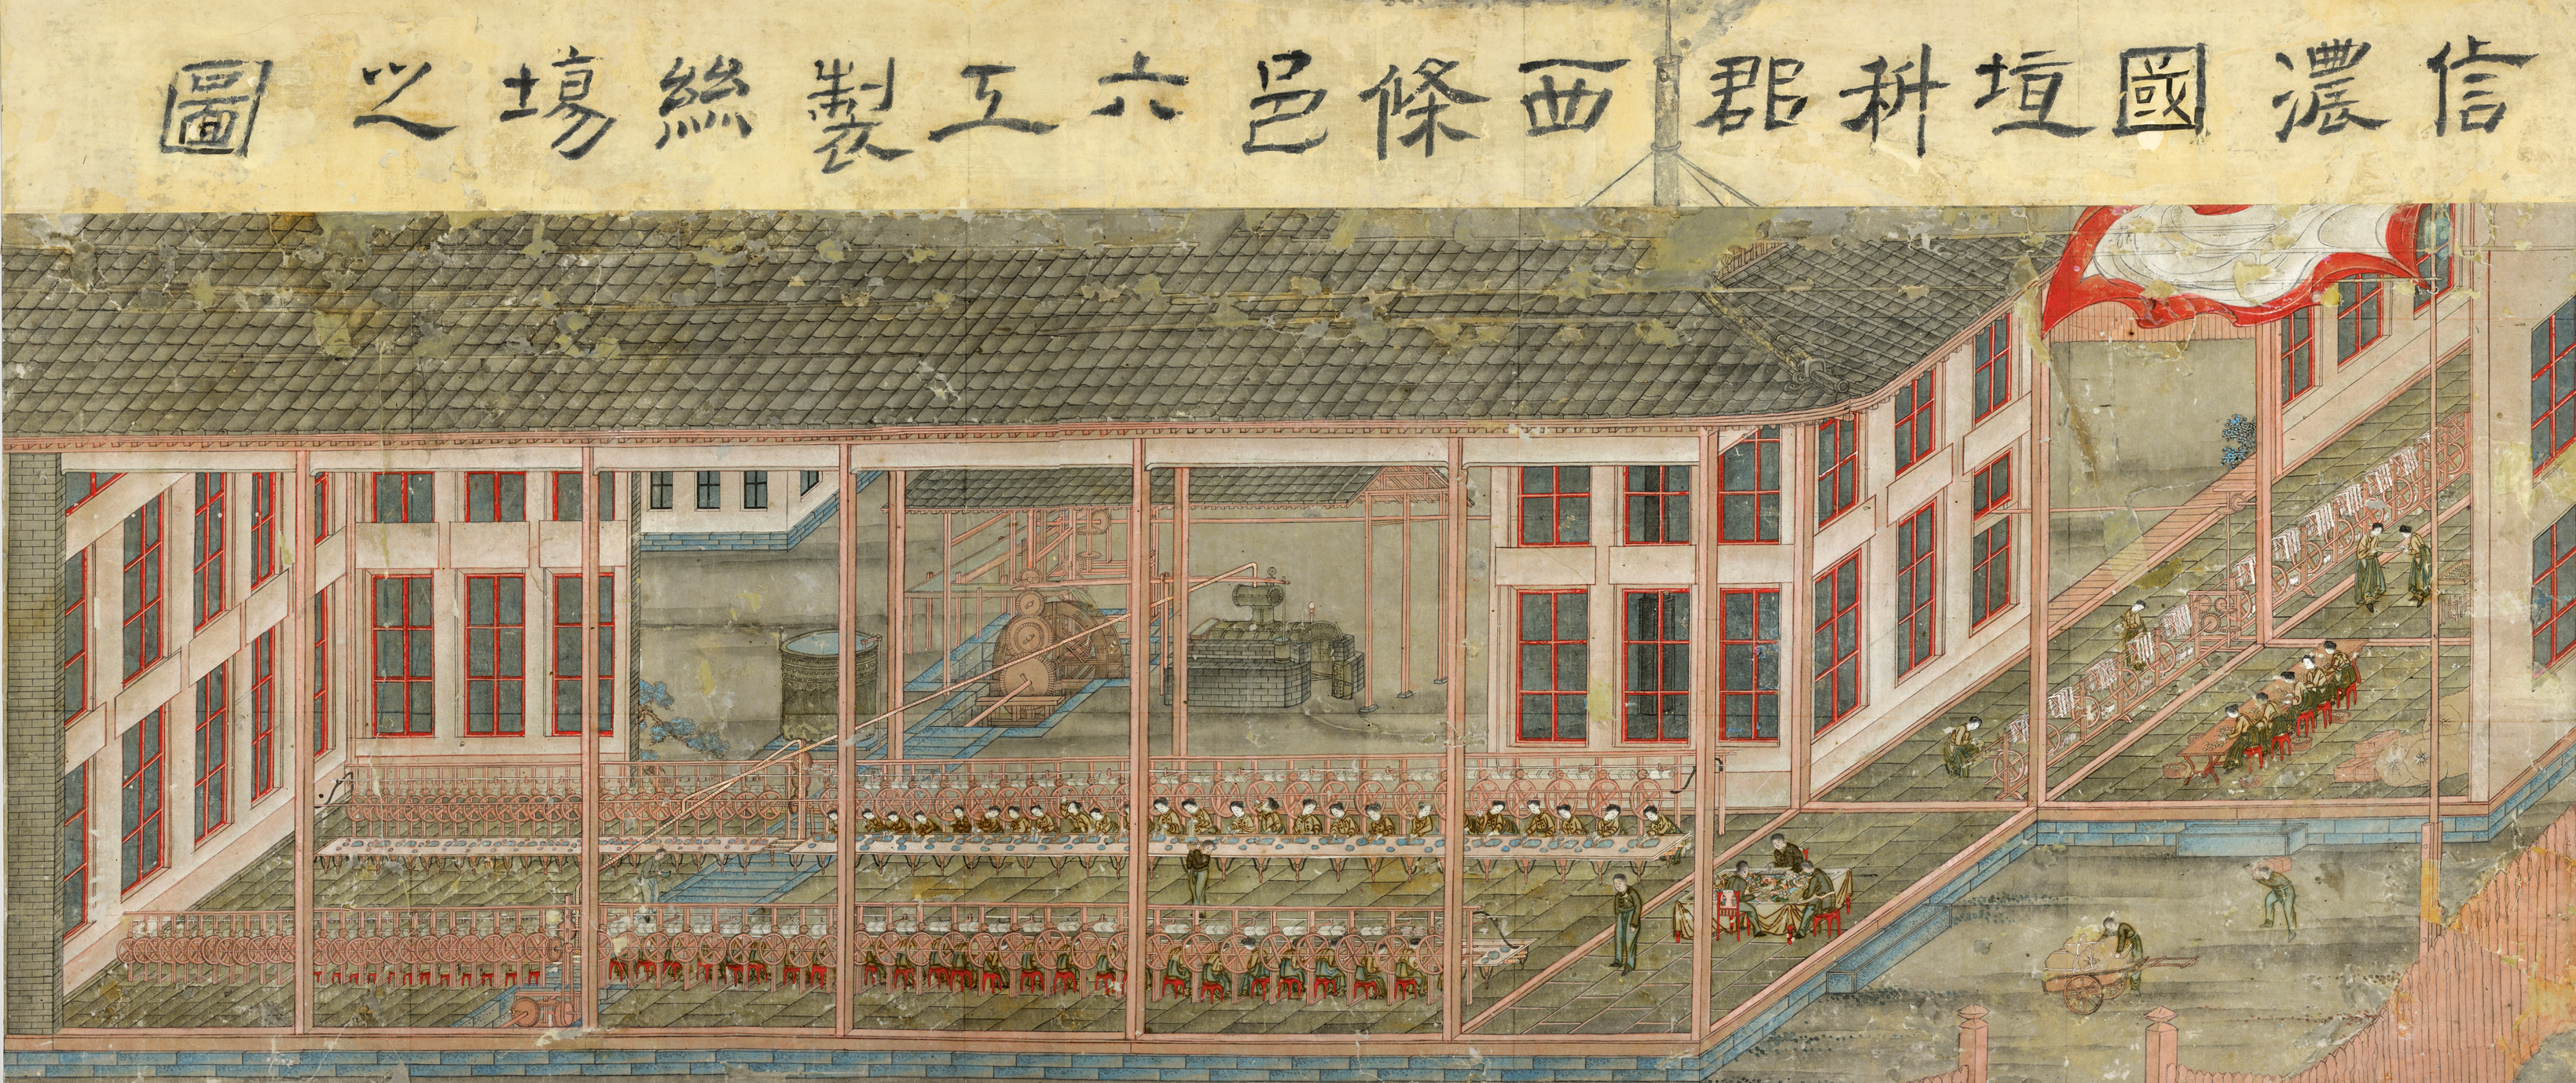 信濃國埴科郡西條邑六工製絲塲之圖